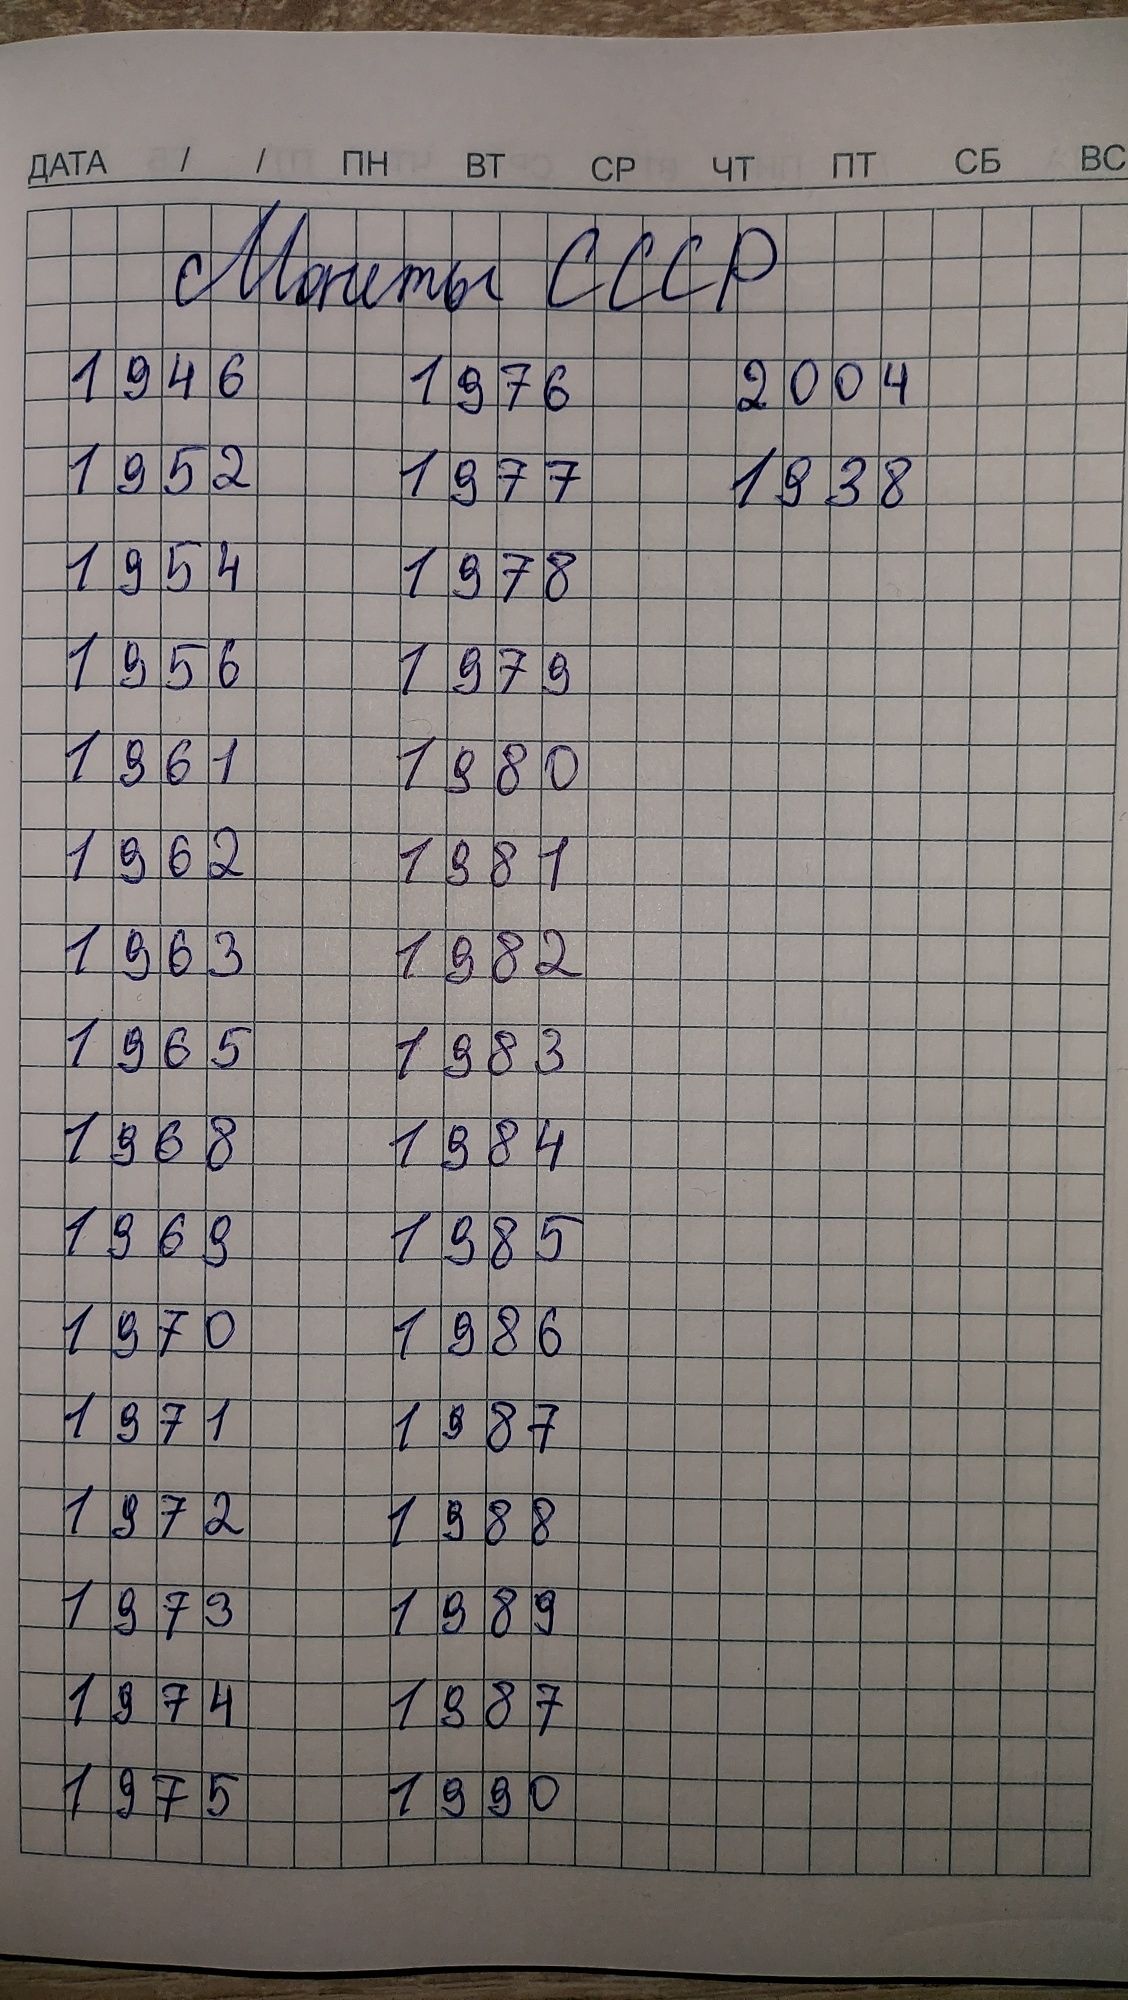 ДАТА / / ПН ВТ СР ЧТ ПТ СБ ВС
Монеты СССР
1946 1976 2004
1952 1977 1938
1954 1978
1956 1979
1961 1980
1962 1981
1963 1982
1965 1983
1968 1984
1969 1985
1970 1986
1971 1987
1972 1988
1973 1989
1974 1987
1975 1990